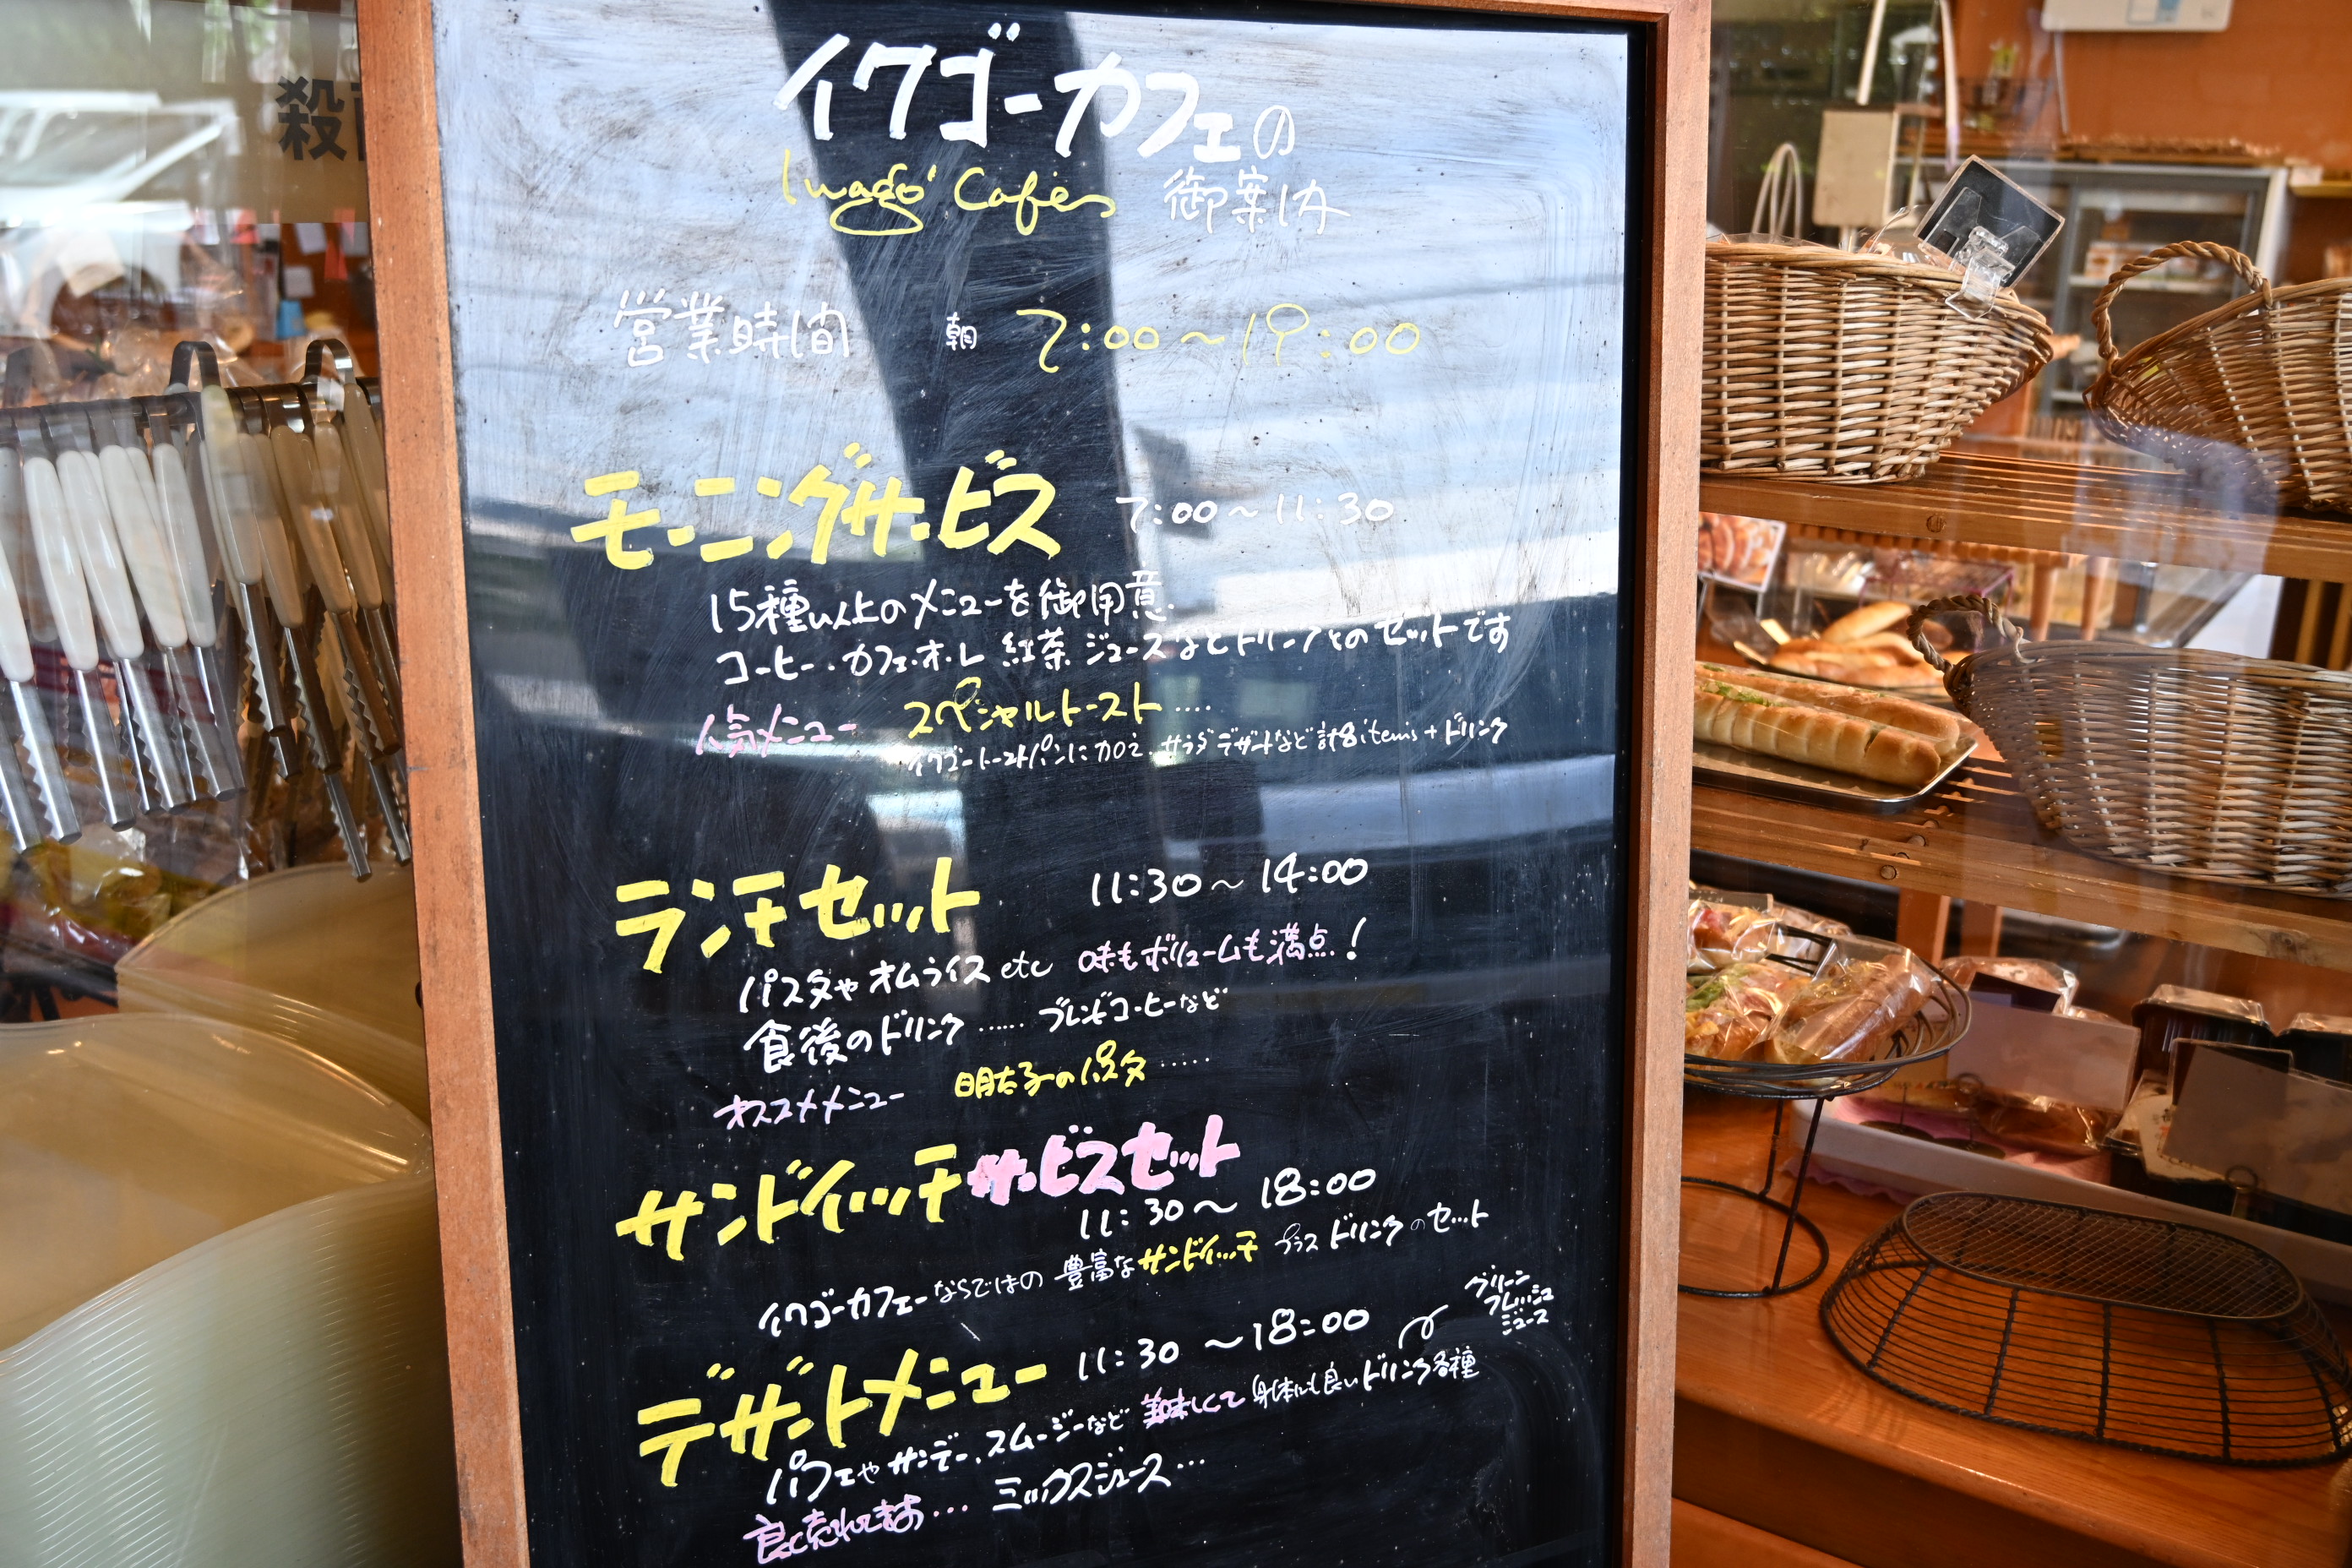 殺
イワゴーカフェの
Iwago' Cafés 御案内
営業時間 朝 7:00～19:00
モーニングサービス 7:00～11:30
15種以上のメニューを御用意.
コーヒー・カフェ・オ・レ 紅茶 ジュースなどドリンクとのセットです
人気メニュー スペシャルトースト....
イワゴートーストパンに加え、サラダデザートなど計8items+ドリンク
ランチセット 11:30～14:00
パスタやオムライスetc 味もボリュームも満点!
食後のドリンク...... ブレンドコーヒーなど
オススメメニュー 明太子のパスタ.....
サンドイッチサービスセット
11:30～18:00
イワゴーカフェーならではの 豊富なサンドイッチ プラス ドリンクのセット
デザートメニュー 11:30～18:00
グリーン
フレッシュ
ジュース
パフェやサンデー、スムージーなど 美味しくて 身体にも良いドリンク各種
良く売れてます... ミックスジュース...